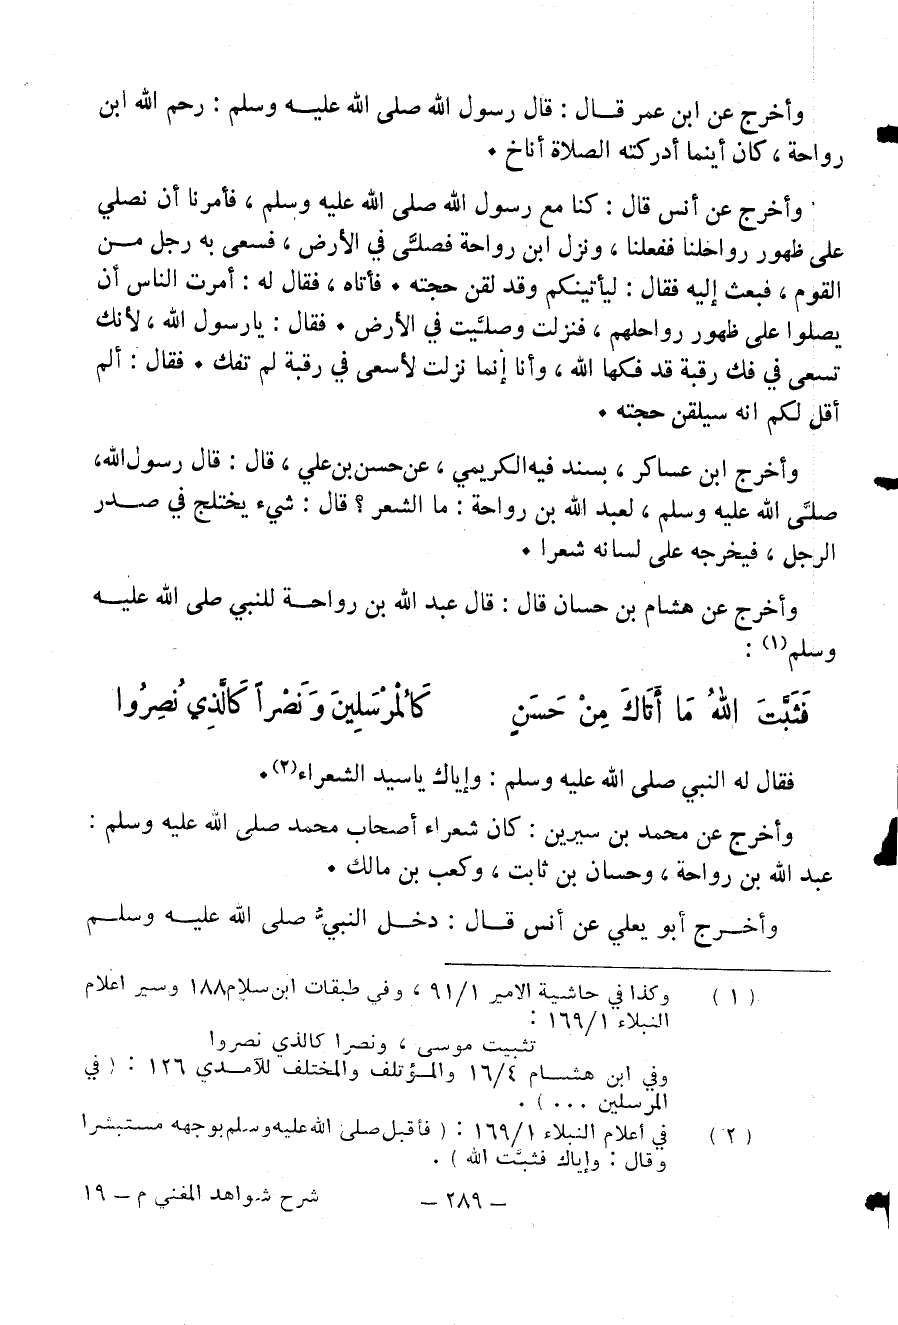 وأخرج عن ابن عمر قـــال : قال رسول الله صلى الله عليـــه وسلم : رحم الله ابن
رواحة ، كان أينما أدركته الصلاة أناخ .
وأخرج عن أنس قال : كنا مع رسول الله صلى الله عليه وسلم ، فأمرنا أن نصلي
على ظهور رواحلنا ففعلنا ، ونزل ابن رواحة فصلّى في الأرض ، فسعى به رجل مـــن
القوم ، فبعث إليه فقال : ليأتينكم وقد لقن حجته . فأتاه ، فقال له : أمرت الناس أن
يصلوا على ظهور رواحلهم ، فنزلت وصلّيت في الأرض . فقال : يارسول الله ، لأنك
تسعى في فك رقبة قد فكها الله ، وأنا إنما نزلت لأسعى في رقبة لم تفك . فقال : ألم
أقل لكم انه سيلقن حجته .
وأخرج ابن عساكر ، بسند فيه الكريمي ، عن حسن بن علي ، قال : قال رسول الله،
صلّى الله عليه وسلم ، لعبد الله بن رواحة : ما الشعر ؟ قال : شيء يختلج في صـــدر
الرجل ، فيخرجه على لسانه شعرا .
وأخرج عن هشام بن حسان قال : قال عبد الله بن رواحـــة للنبي صلى الله عليـــه
وسلم(١) :
فَثَبَّتَ اللهُ مَا أَتَاكَ مِنْ حَسَنٍ كَالْمُرْسَلِينَ وَنَصْراً كَالَّذِي نُصِرُوا
فقال له النبي صلى الله عليه وسلم : وإياك ياسيد الشعراء(٢).
وأخرج عن محمد بن سيرين : كان شعراء أصحاب محمد صلى الله عليه وسلم :
عبد الله بن رواحة ، وحسان بن ثابت ، وكعب بن مالك .
وأخـــرج أبو يعلي عن أنس قـــال : دخـــل النبيّ صلى الله عليـــه وسلـــم
( ١ ) وكذا في حاشية الامير ٩١/١ ، وفي طبقات ابن سلام ١٨٨ وسير اعلام
النبلاء ١٦٩/١ :
تثبيت موسى ، ونصرا كالذي نصروا
وفي ابن هشـــام ١٦/٤ والمـــؤتلف والمختلف للآمـــدي ١٢٦ : ( في
المرسلين ... ) .
( ٢ ) في أعلام النبلاء ١٦٩/١ : ( فأقبل صلى الله عليه وسلم بوجهه مستبشرا
وقال : وإياك فثبّت الله ) .
– ٢٨٩ – شرح شواهد المغني م – ١٩